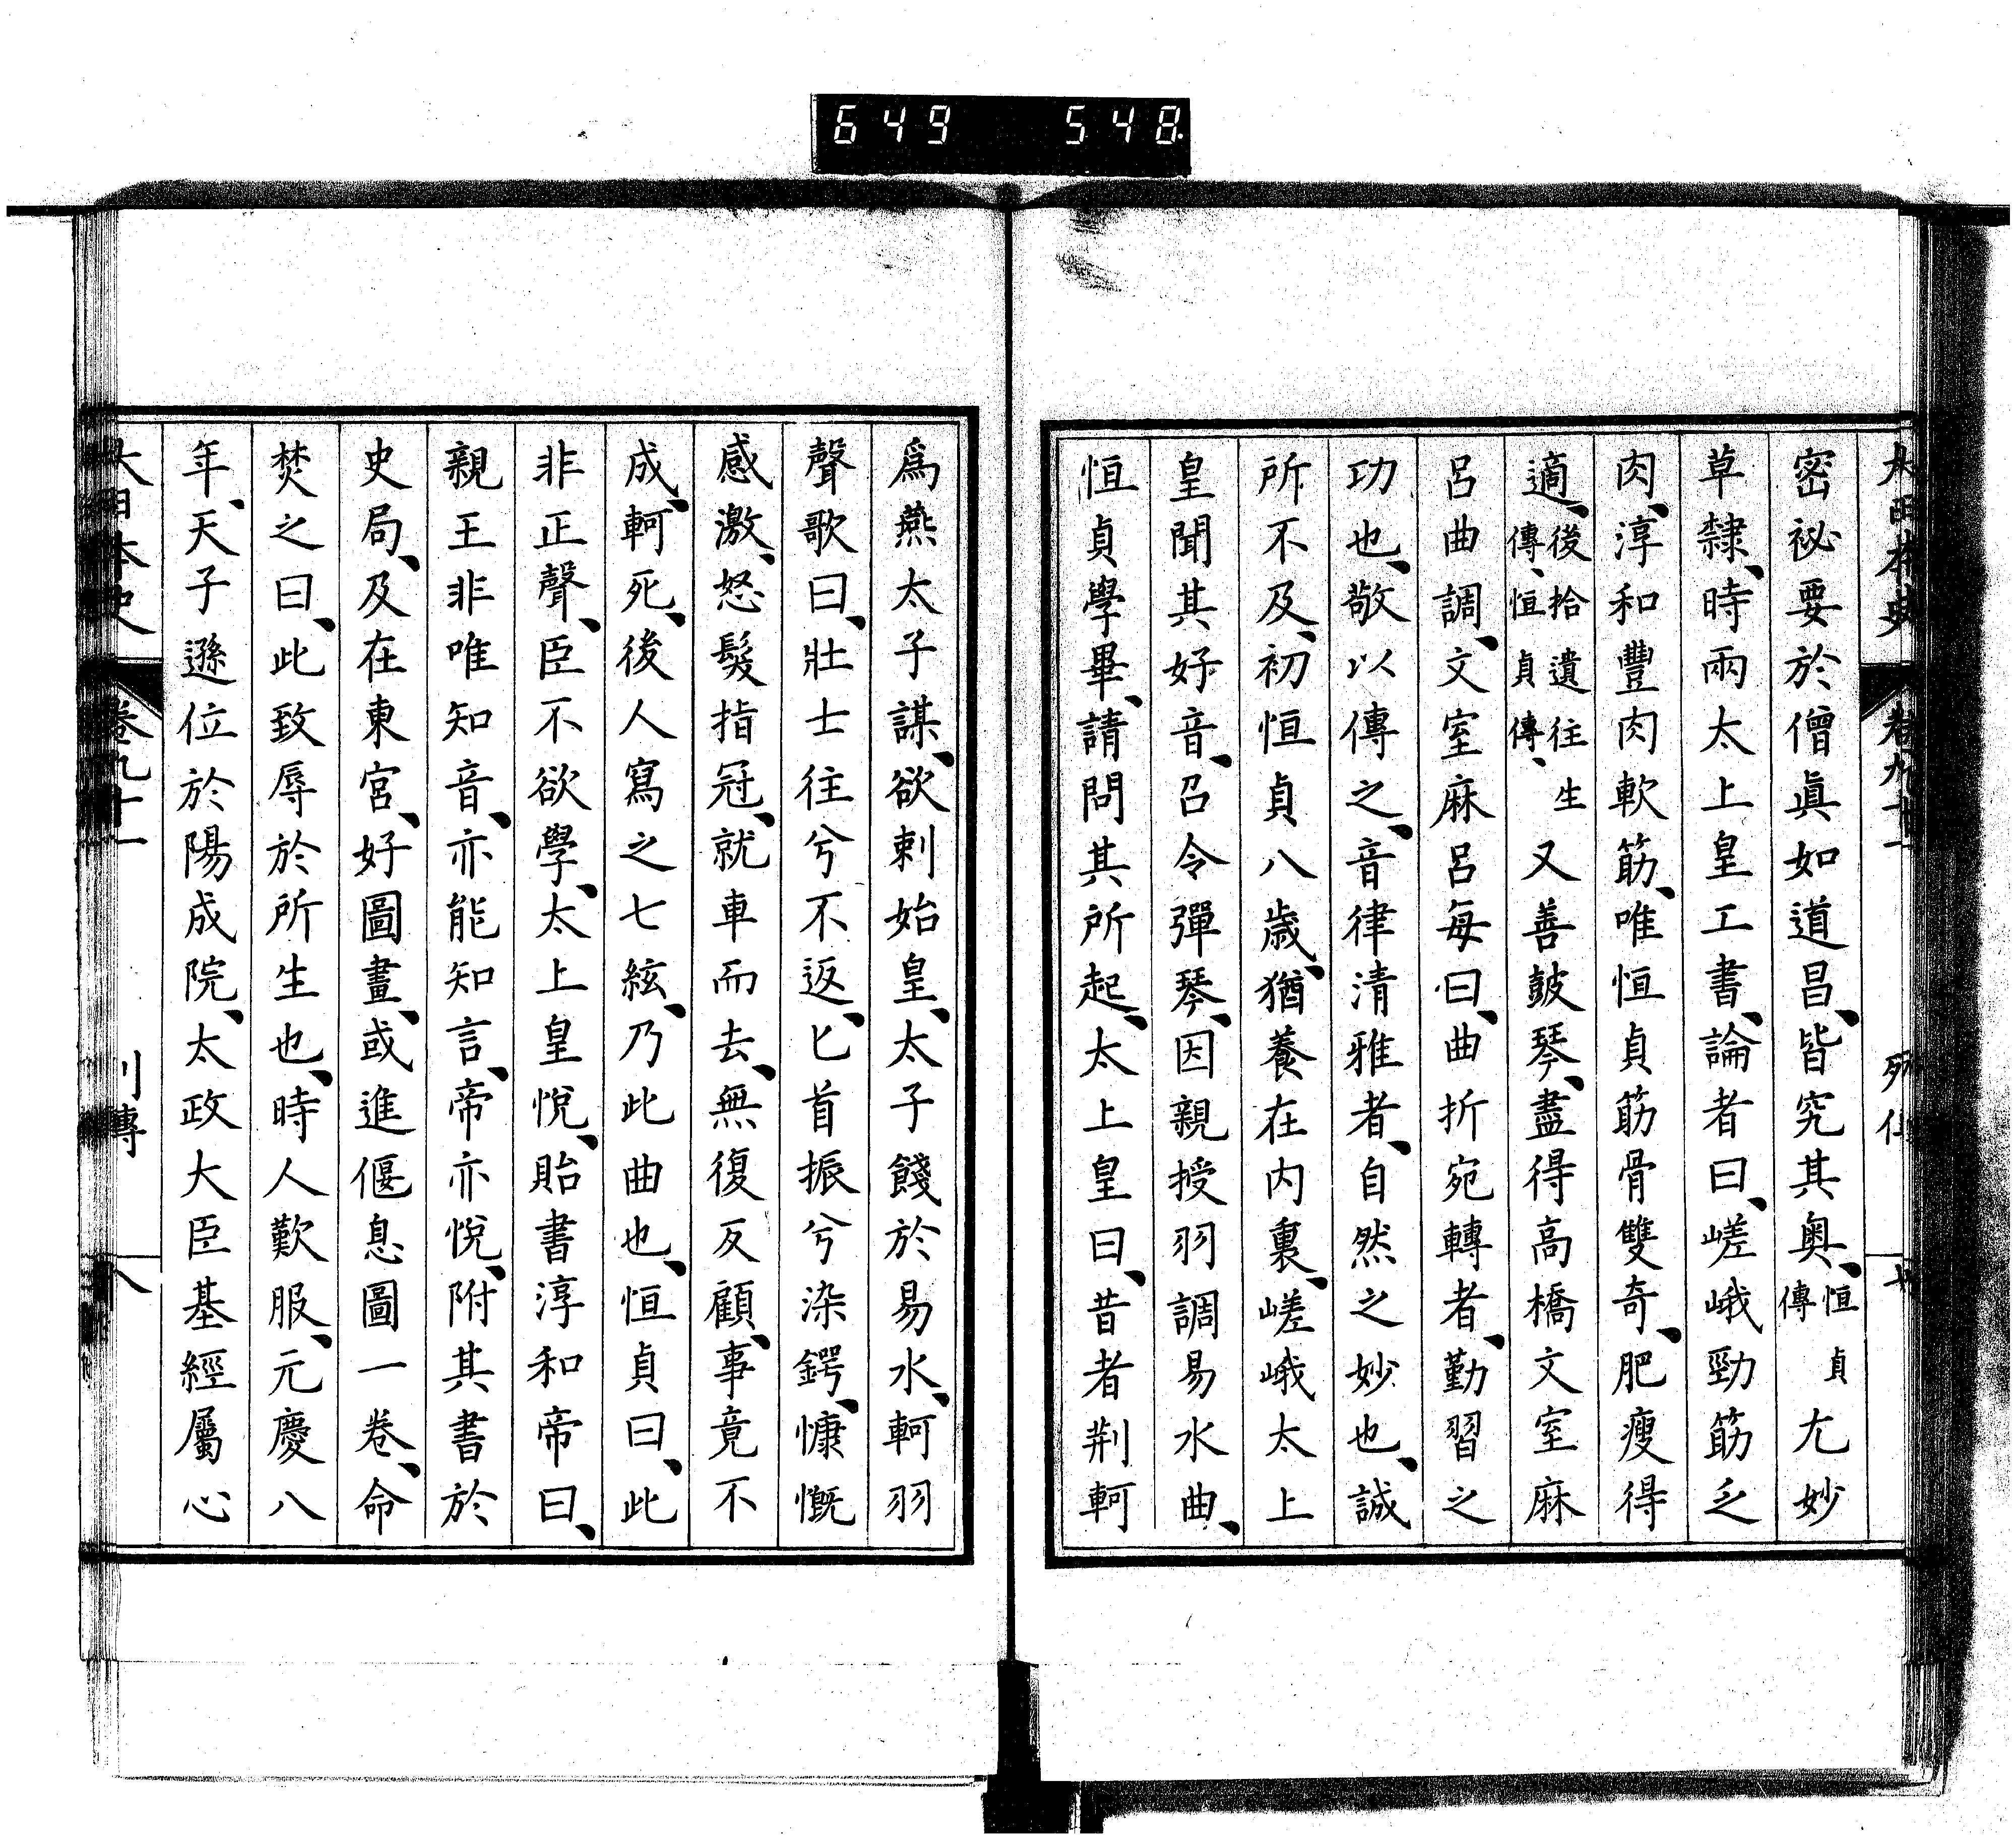 649 548.
密祕要於僧眞如道昌、皆究其奥、恒貞傳尤妙
草隸、時兩太上皇工書、論者曰、嵯峨勁筋乏
肉、淳和豐肉軟筋、唯恒貞筋骨雙奇、肥瘦得
適、後拾遺往生傳、恒貞傳、又善鼓琴、盡得高橋文室麻
呂曲調、文室麻呂每曰、曲折宛轉者、勤習之
功也、敬以傳之、音律清雅者、自然之妙也、誠
所不及、初恒貞八歳、猶養在内裏、嵯峨太上
皇聞其好音、召令彈琴、因親授羽調易水曲、
恒貞學畢、請問其所起、太上皇曰、昔者荆軻
爲燕太子謀、欲刺始皇、太子餞於易水、軻羽
聲歌曰、壯士往兮不返、匕首振兮染鍔、慷慨
感激、怒髮指冠、就車而去、無復反顧、事竟不
成、軻死、後人寫之七絃、乃此曲也、恒貞曰、此
非正聲、臣不欲學、太上皇悅、貽書淳和帝曰、
親王非唯知音、亦能知言、帝亦悅、附其書於
史局、及在東宮、好圖畫、或進偃息圖一卷、命
焚之曰、此致辱於所生也、時人歎服、元慶八
年、天子遜位於陽成院、太政大臣基經屬心
大日本史 卷九十一 列傳 八